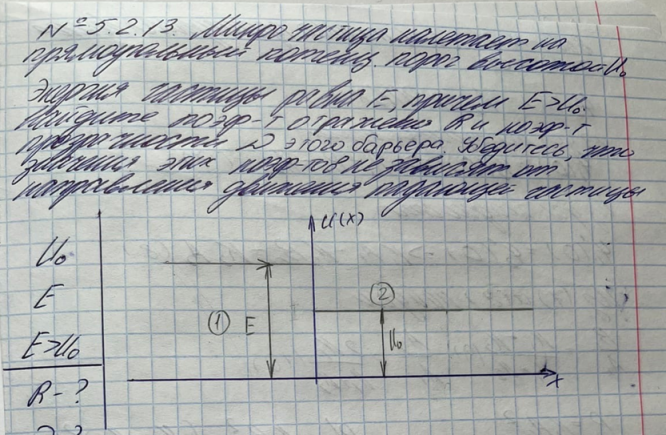 № 5.2.13. Микрочастица налетает на
прямоугольный потенц. порог высотой U₀
Энергия частицы равна E, причем E>U₀.
Найдите коэф-т отражения R и коэф-т
прозрачности D этого барьера. Убедитесь, что
значения этих коэф-тов не зависят от
направления движения падающей частицы
U(x)
U₀
E
E>U₀
R-?
D-?
① E
②
U₀
x